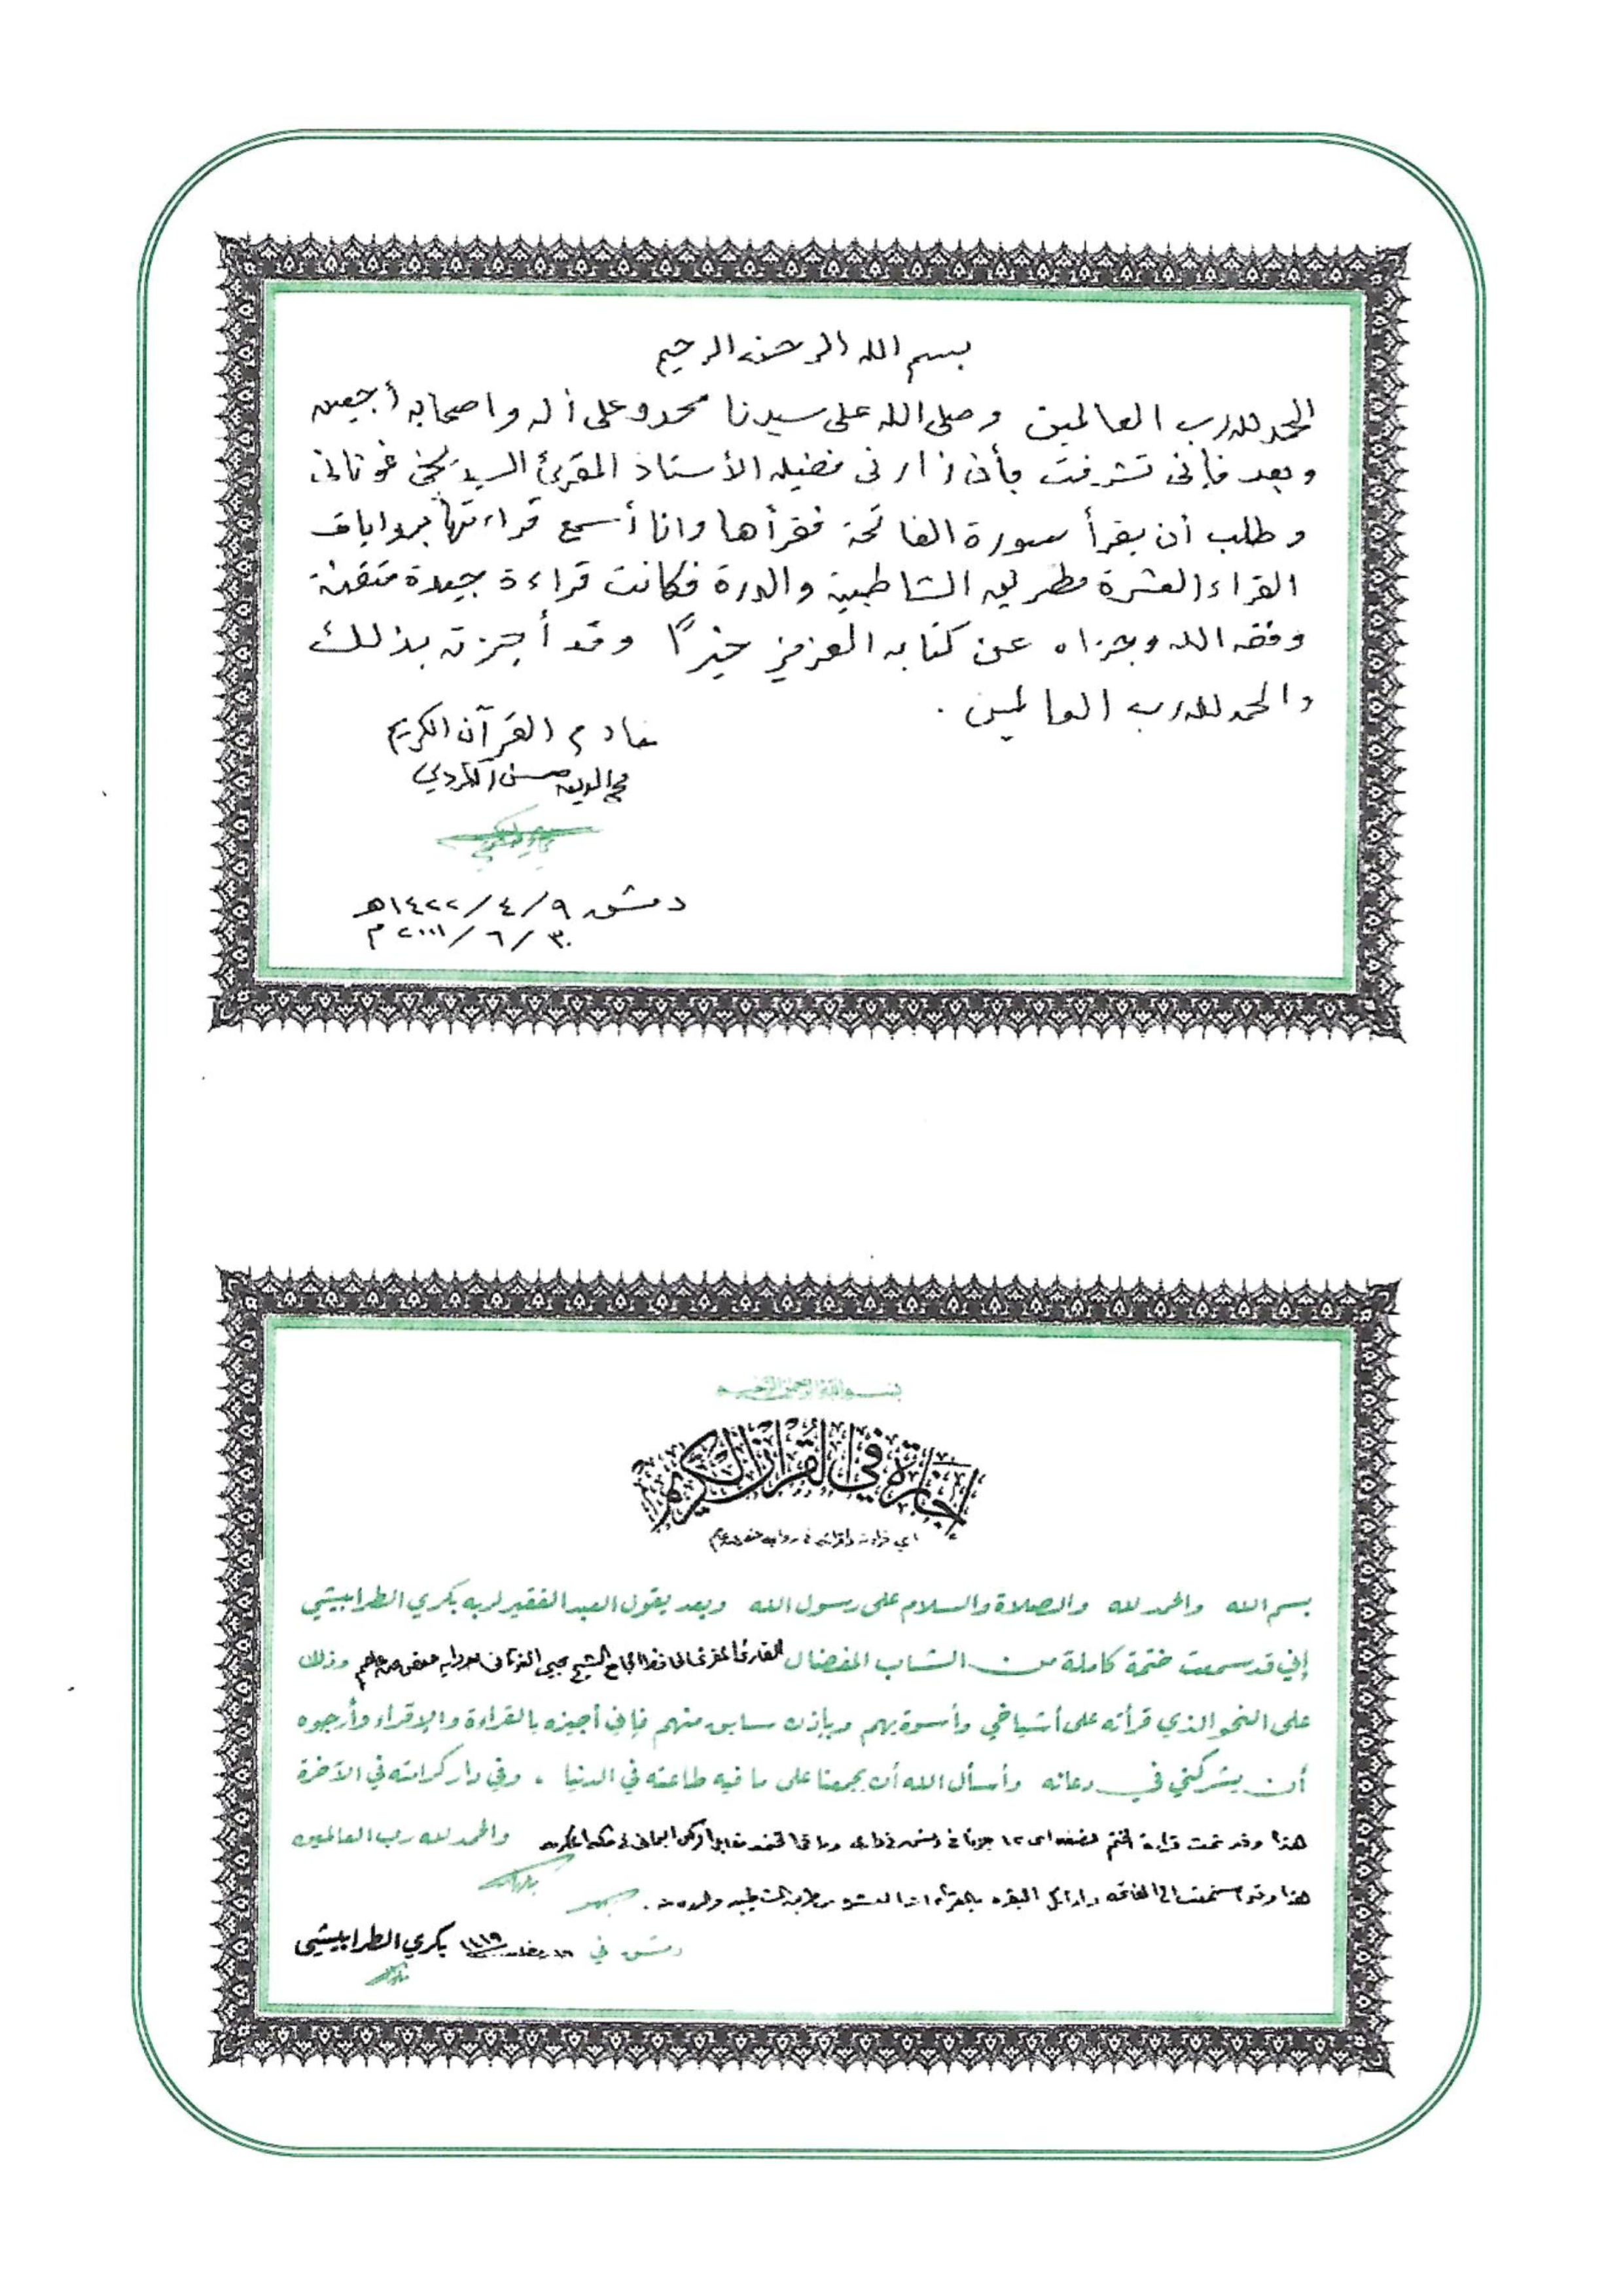 بسم الله الرحمن الرحيم
الحمد لله رب العالمين وصلى الله على سيدنا محمد وعلى أله واصحابه أجمعين
وبعد فإني تشرفت بأن زارني فضيلة الأستاذ المقرئ السيد يحيى غوثاني
وطلب أن يقرأ سورة الفاتحة فقرأها وانا أسمع قراءتها بروايات
القراء العشرة من طريق الشاطبية والدرة فكانت قراءة جيدة متقنة
وفقه الله وجزاه عن كتابه العزيز خيراً وقد أجزته بذلك
والحمد لله رب العالمين .
خادم القرآن الكريم
محي الدين حسن الكردي
دمشق ٩/٤/١٤٢٢هـ
٣٠/٦/٢٠٠١م
بسم الله الرحمن الرحيم
إجازة في القرآن الكريم
أي قراءته وإقرائه في رواية حفص عن عاصم
بسم الله والحمد لله والصلاة والسلام على رسول الله وبعد يقول العبد الفقير لربه بكري الطرابيشي
إني قد سمعت ختمة كاملة من الشاب المفضال القارئ المقرئ الحافظ الجامع الشيخ يحيى الغوثاني برواية حفص عن عاصم وذلك
على النحو الذي قرأته على أشياخي وأسوة بهم وبإذن سابق منهم فإني أجيزه بالقراءة والإقراء وأرجوه
أن يشركني في دعائه وأسأل الله أن يجمعنا على ما فيه طاعته في الدنيا ، وفي دار كرامته في الآخرة
هذا وقد تمت قراءة الختم نصفه اي ١٢ جزءاً في دمشق في وباقي الختمة مقابل الركن اليماني في مكة المكرمة والحمد لله رب العالمين
هذا وقد استمعت الى الفاتحة واوائل البقرة بالقراءات العشر من طريق الشاطبية والدرة .
دمشق في بكري الطرابيشي